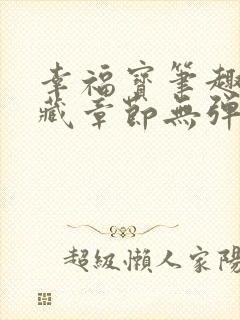 幸福寶筆趣
藏章節無彈
超級懶人家陽